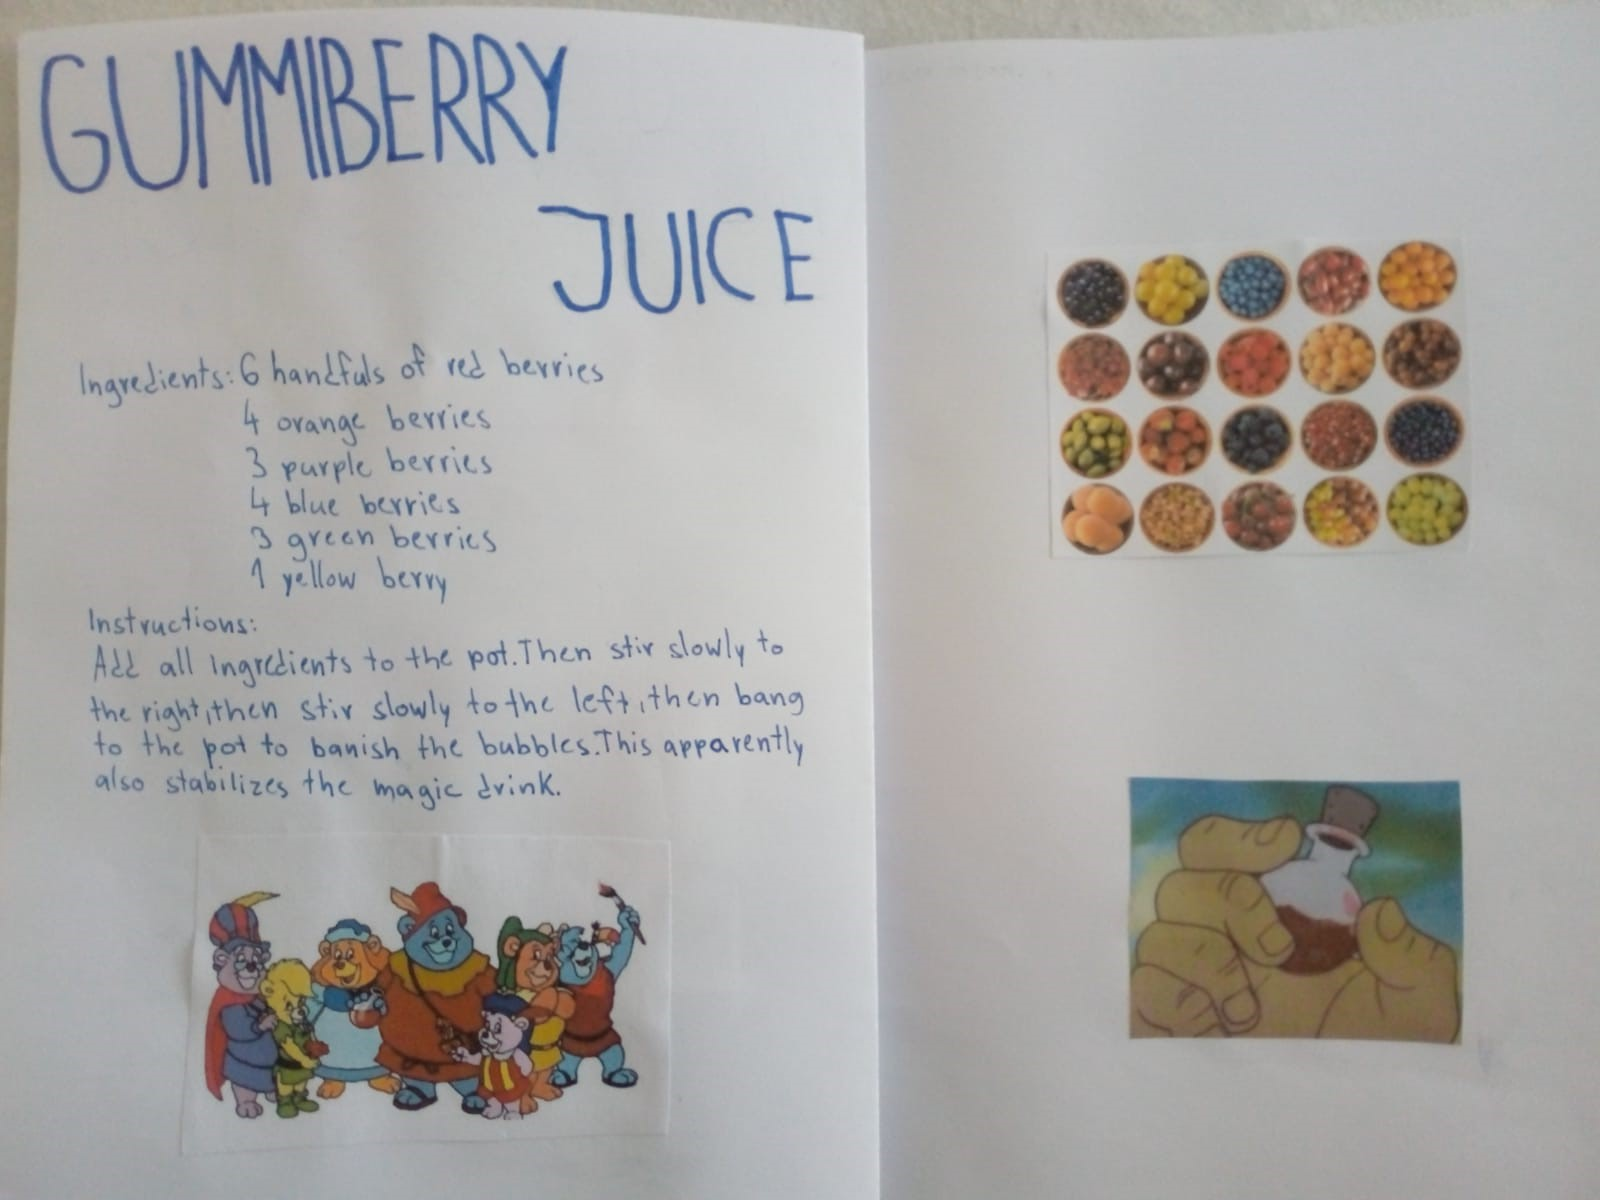 GUMMIBERRY
JUICE
Ingredients: 6 handfuls of red berries
4 orange berries
3 purple berries
4 blue berries
3 green berries
1 yellow berry
Instructions:
Add all ingredients to the pot. Then stir slowly to
the right, then stir slowly to the left, then bang
to the pot to banish the bubbles. This apparently
also stabilizes the magic drink.